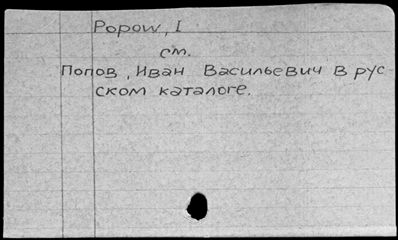 Popow, I
см.
Попов, Иван Васильевич в рус
ском каталоге.